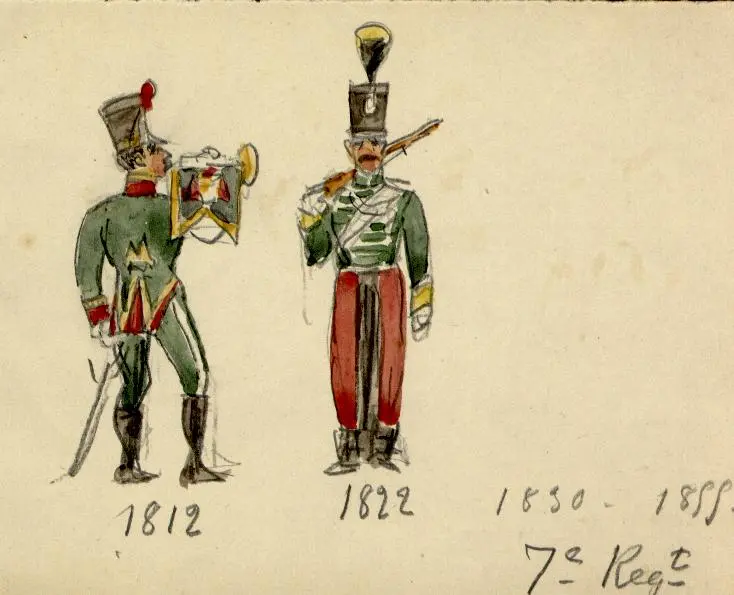 1812
1822
1830 - 1855
7e Regt